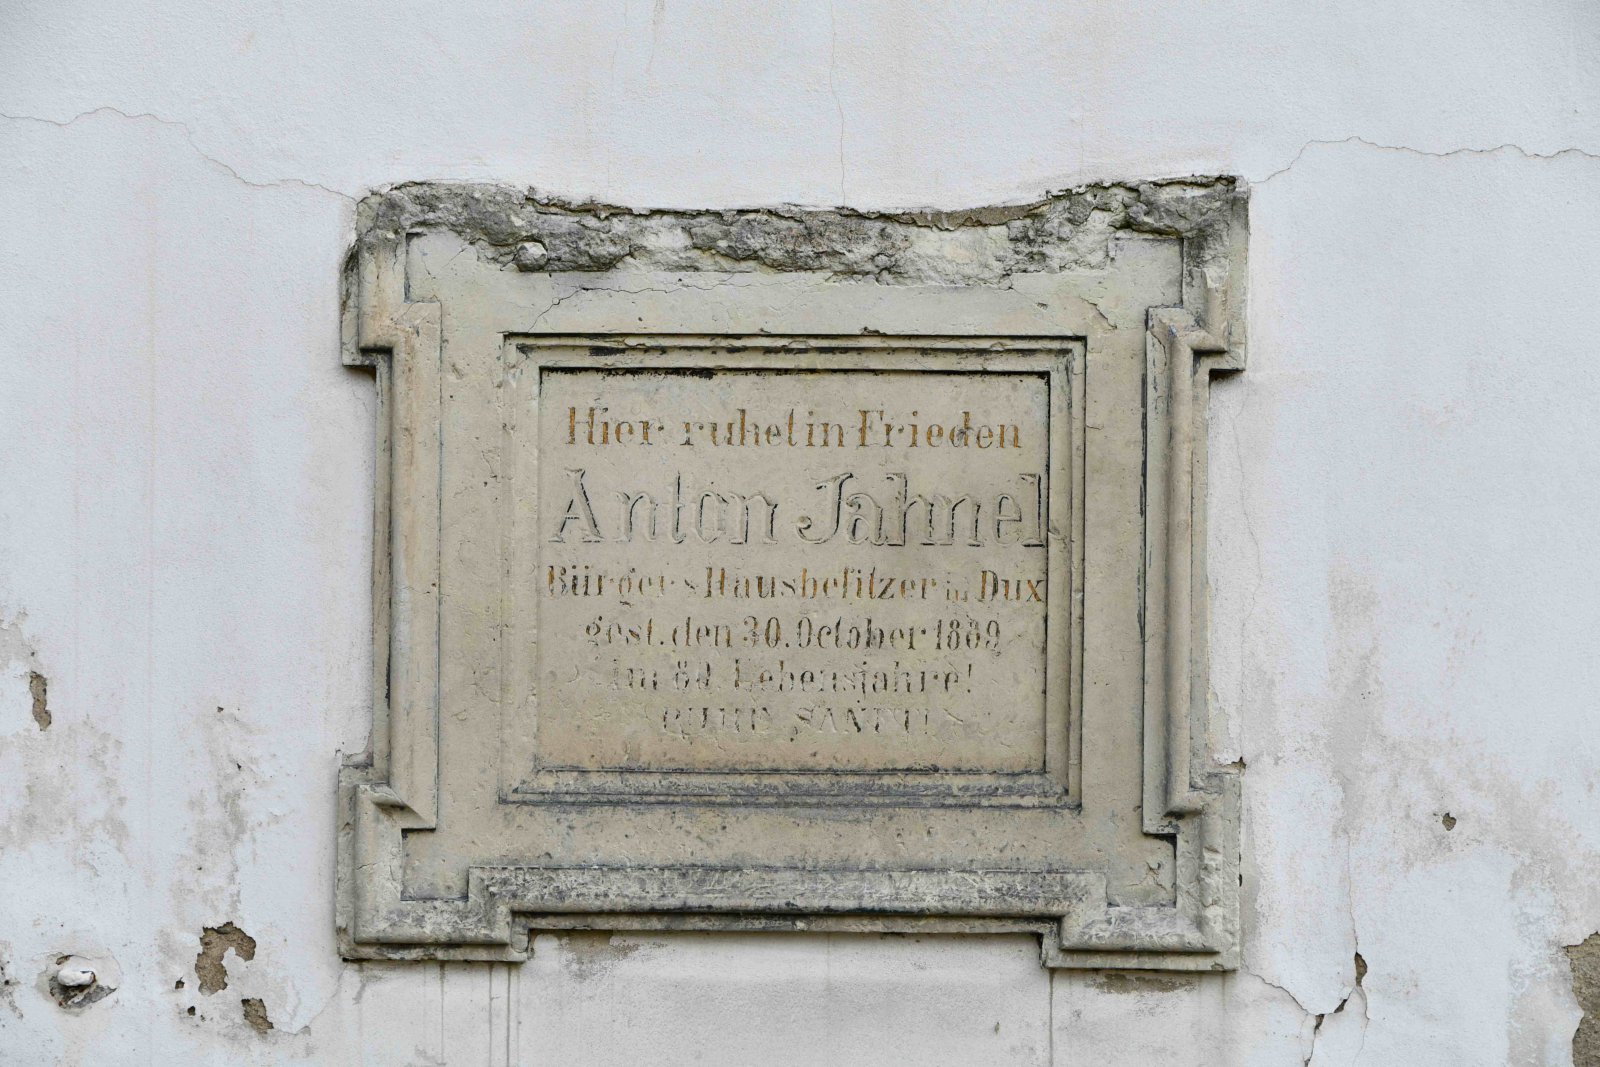 Hier ruhet in Frieden
Anton Jahnel
Bürger u. Hausbesitzer in Dux
gest. den 30. October 1889
im 60. Lebensjahre!